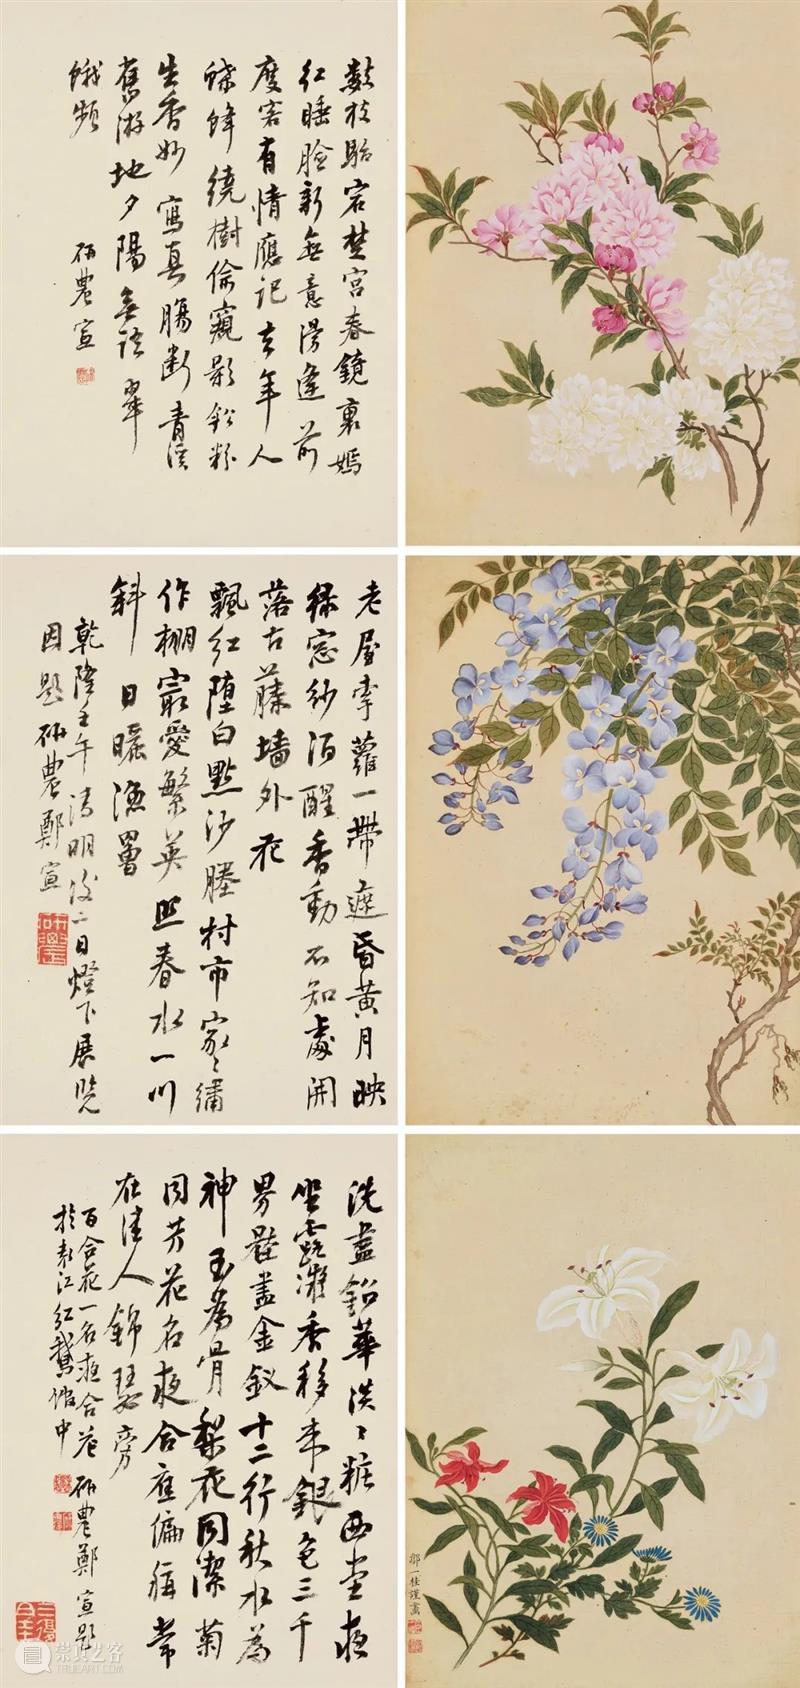 欹枝駘宕楚宮春鏡裏嫣
紅睡臉新無意漫逢前
度客有情應記去年人
蜂繞樹偷窺影鉛粉
生香妙寫真腸斷青溪
舊游地夕陽無語翠
蛾顰
硏農宣
老屋牽蘿一帶遮昏黃月映
綠窓紗酒醒香動不知處開
落古藤墻外花
飄紅墮白點沙塍村市家〻繡
作棚最愛繁英照春水一川
斜日曬漁罾
乾隆壬午清明後二日燈下展覽
因題硏農鄭宣
洗盡鉛華淡〻粧西堂夜
坐露凝香移来銀色三千
界壓盡金釵十二行秋水為
神玉為骨梨花同潔菊
同芳花名夜合應偏稱常
在佳人錦瑟旁
百合花一名夜合花硏農鄭宣題
於袁江紅鵞館中
鄒一桂謹畫
崇真艺客